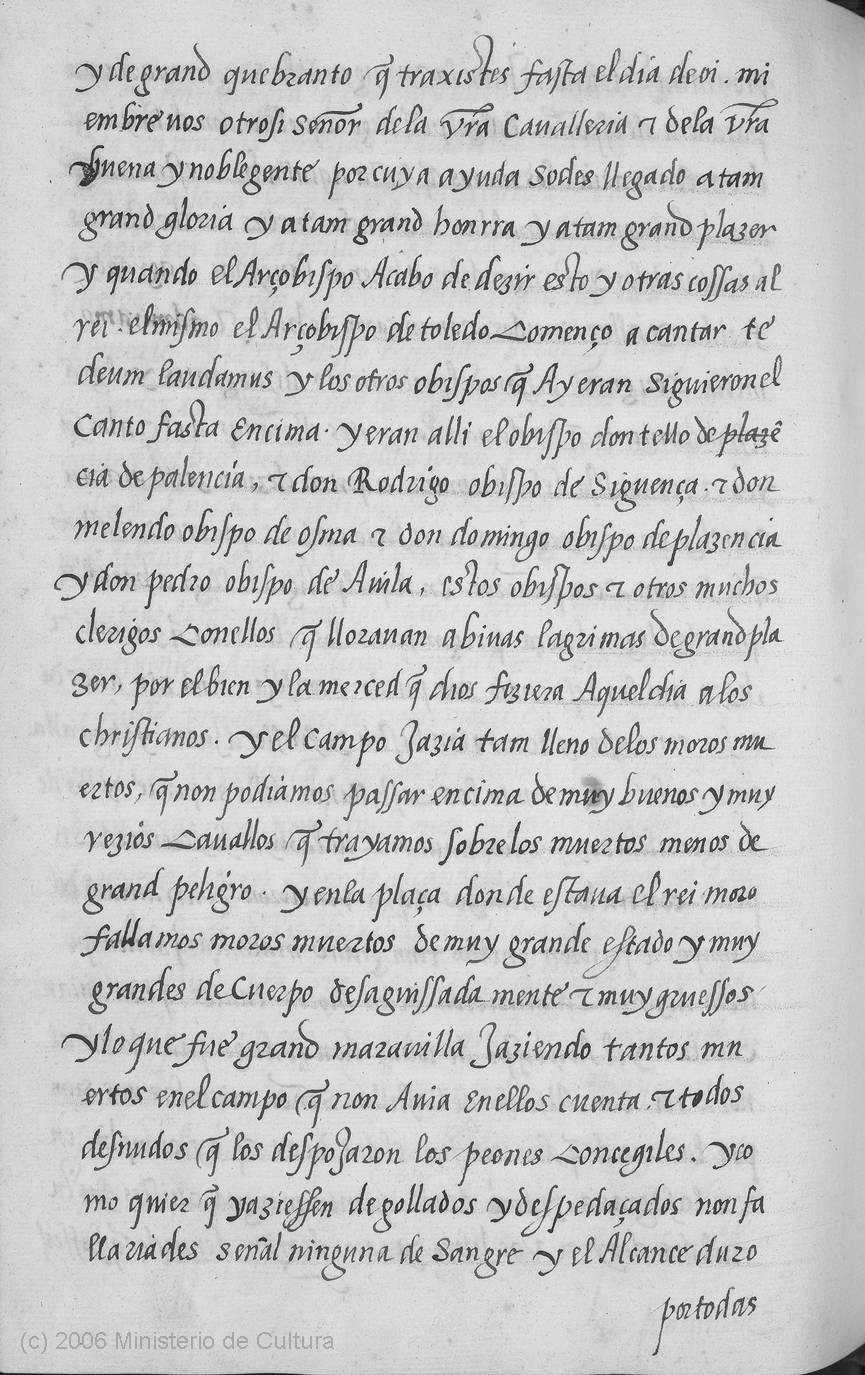 y de grand quebranto q̃ traxistes fasta el dia de oi. mi
embre uos otrosi señor de la vr̃a Caualleria ⁊ de la vr̃a
buena y noble gente por cuya ayuda sodes llegado a tam
grand gloria y a tam grand honrra y a tam grand plazer
y quando el Arçobispo Acabo de dezir esto y otras cossas al
rei. el mismo el Arçobispo de toledo Començo a cantar te
deum laudamus y los otros obispos q̃ Ay eran siguieron el
Canto fasta Encima. y eran alli el obispo don tello de plazẽ
cia de palencia, ⁊ don Rodrigo obispo de Siguença. ⁊ don
melendo obispo de osma ⁊ don domingo obispo de plazencia
y don pedro obispo de Auila, estos obispos ⁊ otros muchos
clerigos Con ellos q̃ llorauan a biuas lagrimas de grand pla
zer, por el bien y la merced q̃ dios fiziera Aquel dia a los
christianos. y el Campo Jazia tam lleno de los moros mu
ertos, q̃ non podiamos passar encima de muy buenos y muy
rezios Cauallos q̃ trayamos sobre los muertos menos de
grand peligro. y en la plaça donde estaua el rei moro
fallamos moros muertos de muy grande estado y muy
grandes de Cuerpo desaguissada mente ⁊ muy gruessos
y lo que fue grand marauilla Jaziendo tantos mu
ertos en el campo q̃ non Auia En ellos cuenta. ⁊ todos
desnudos q̃ los despoJaron los peones Concegiles. y co
mo quier q̃ yaziessen degollados y despedaçados non fa
llariades señal ninguna de Sangre y el Alcance duro
por todas
(c) 2006 Ministerio de Cultura